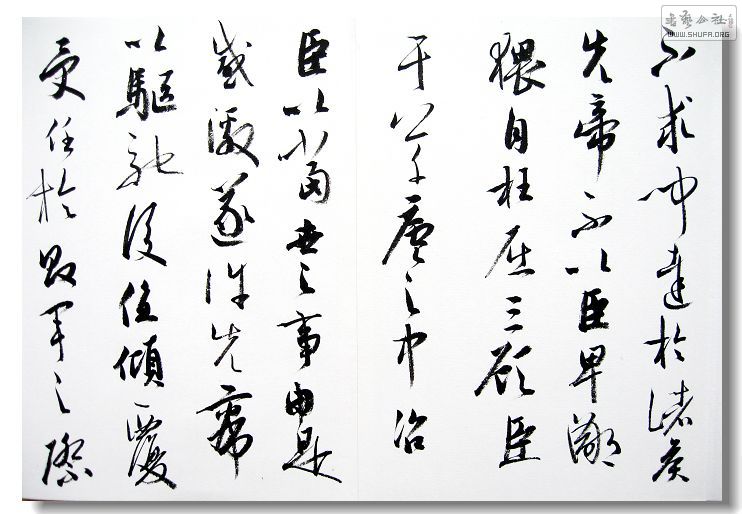 不求聞達於諸侯
先帝不以臣卑鄙
猥自枉屈三顧臣
于草廬之中咨
臣以當世之事由是
感激遂許先帝
以驅馳後值傾覆
受任於敗軍之際
書藝公社
WWW.SHUFA.ORG